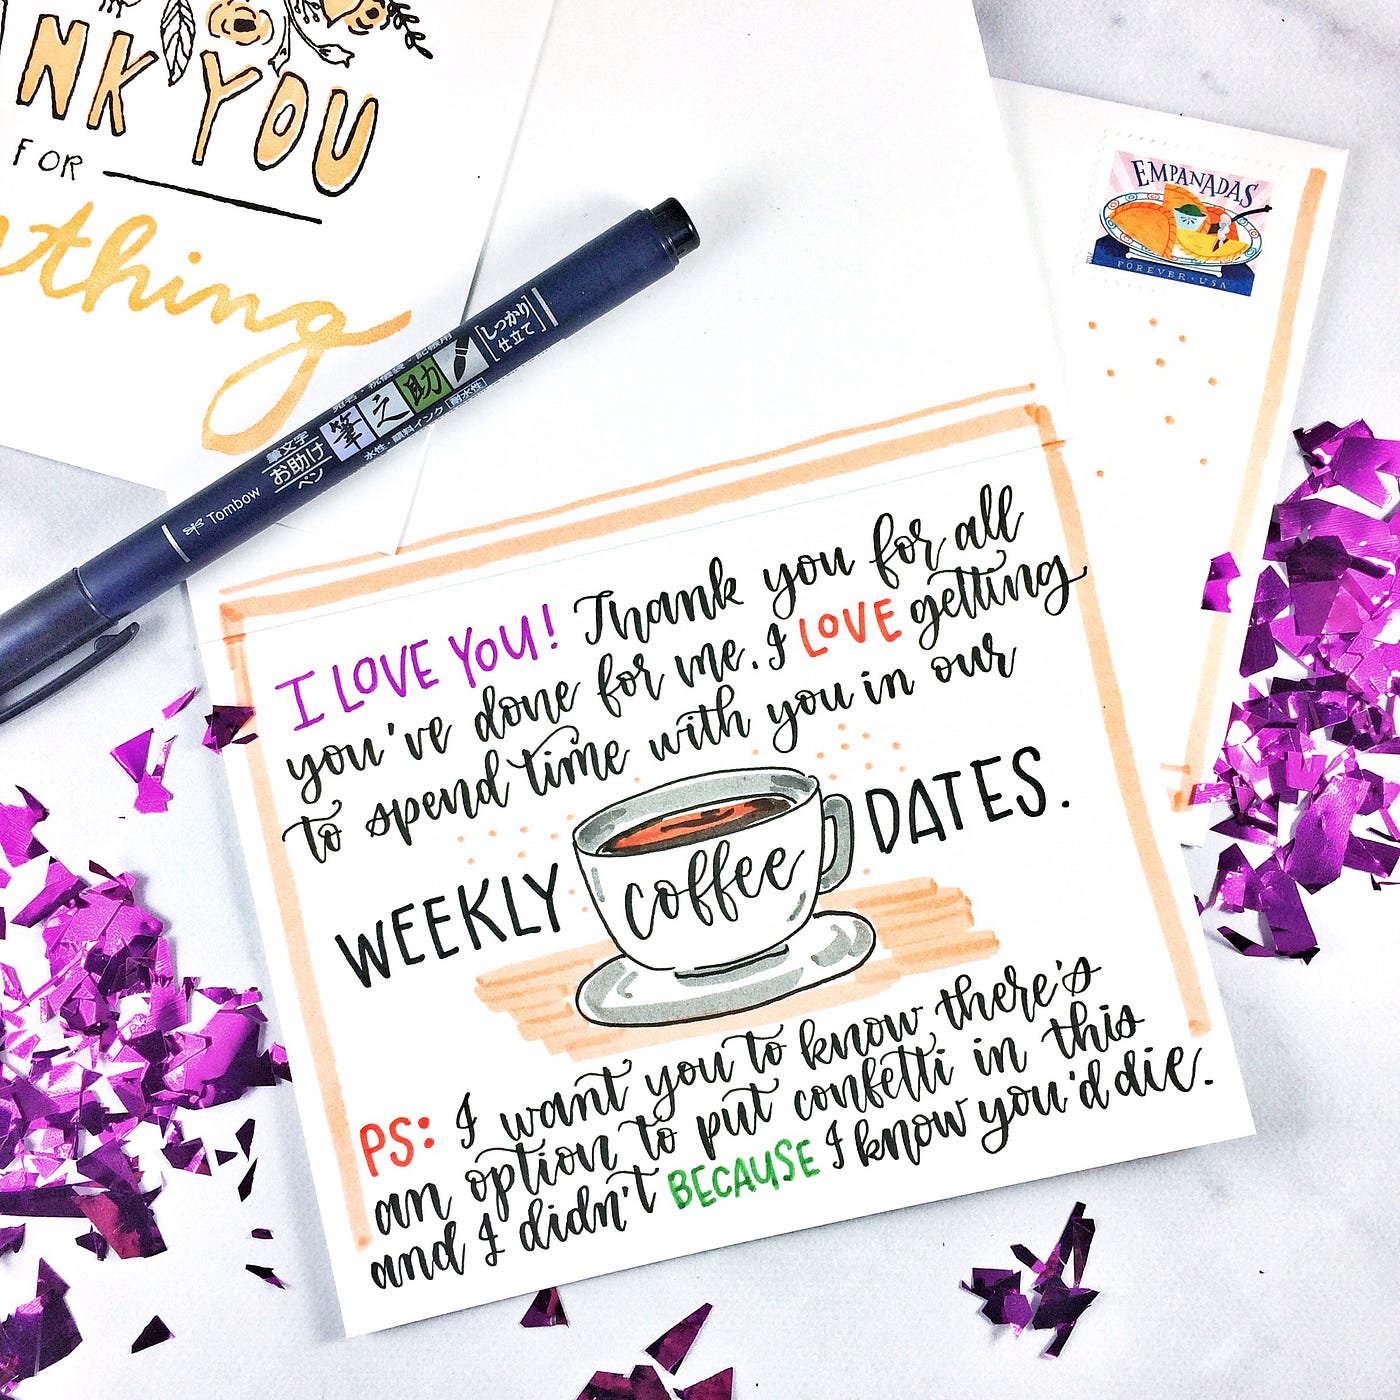 NK YOU
FOR
thing
EMPANADAS
FOREVER · USA
しっかり
仕立て
筆之助
水性・顔料インク 耐水性
筆文字
お助け
ペン
Tombow
I LOVE YOU! Thank you for all
you've done for me. I LOVE getting
to spend time with you in our
WEEKLY coffee DATES.
PS: I want you to know there's
an option to put confetti in this
and I didn't BECAUSE I know you'd die.